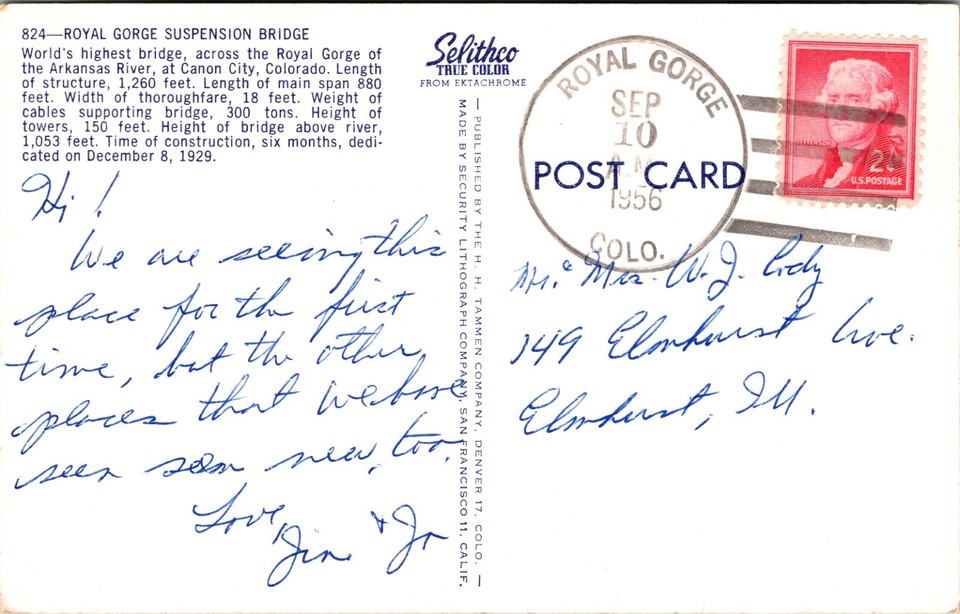 824—ROYAL GORGE SUSPENSION BRIDGE
World's highest bridge, across the Royal Gorge of
the Arkansas River, at Canon City, Colorado. Length
of structure, 1,260 feet. Length of main span 880
feet. Width of thoroughfare, 18 feet. Weight of
cables supporting bridge, 300 tons. Height of
towers, 150 feet. Height of bridge above river,
1,053 feet. Time of construction, six months, dedi-
cated on December 8, 1929.
Hi!
We are seeing this
place for the first
time, but the other
places that we have
seen seem new, too.
Love,
Jim & Jo
Selithco
TRUE COLOR
FROM EKTACHROME
— PUBLISHED BY THE H. H. TAMMEN COMPANY, DENVER 17, COLO. —
MADE BY SECURITY LITHOGRAPH COMPANY, SAN FRANCISCO 11, CALIF.
ROYAL GORGE
SEP
10
A.M.
1956
COLO.
POST CARD
JEFFERSON
2¢
U.S. POSTAGE
Mr. & Mrs. W. J. Cody
149 Elmhurst Ave.
Elmhurst, Ill.